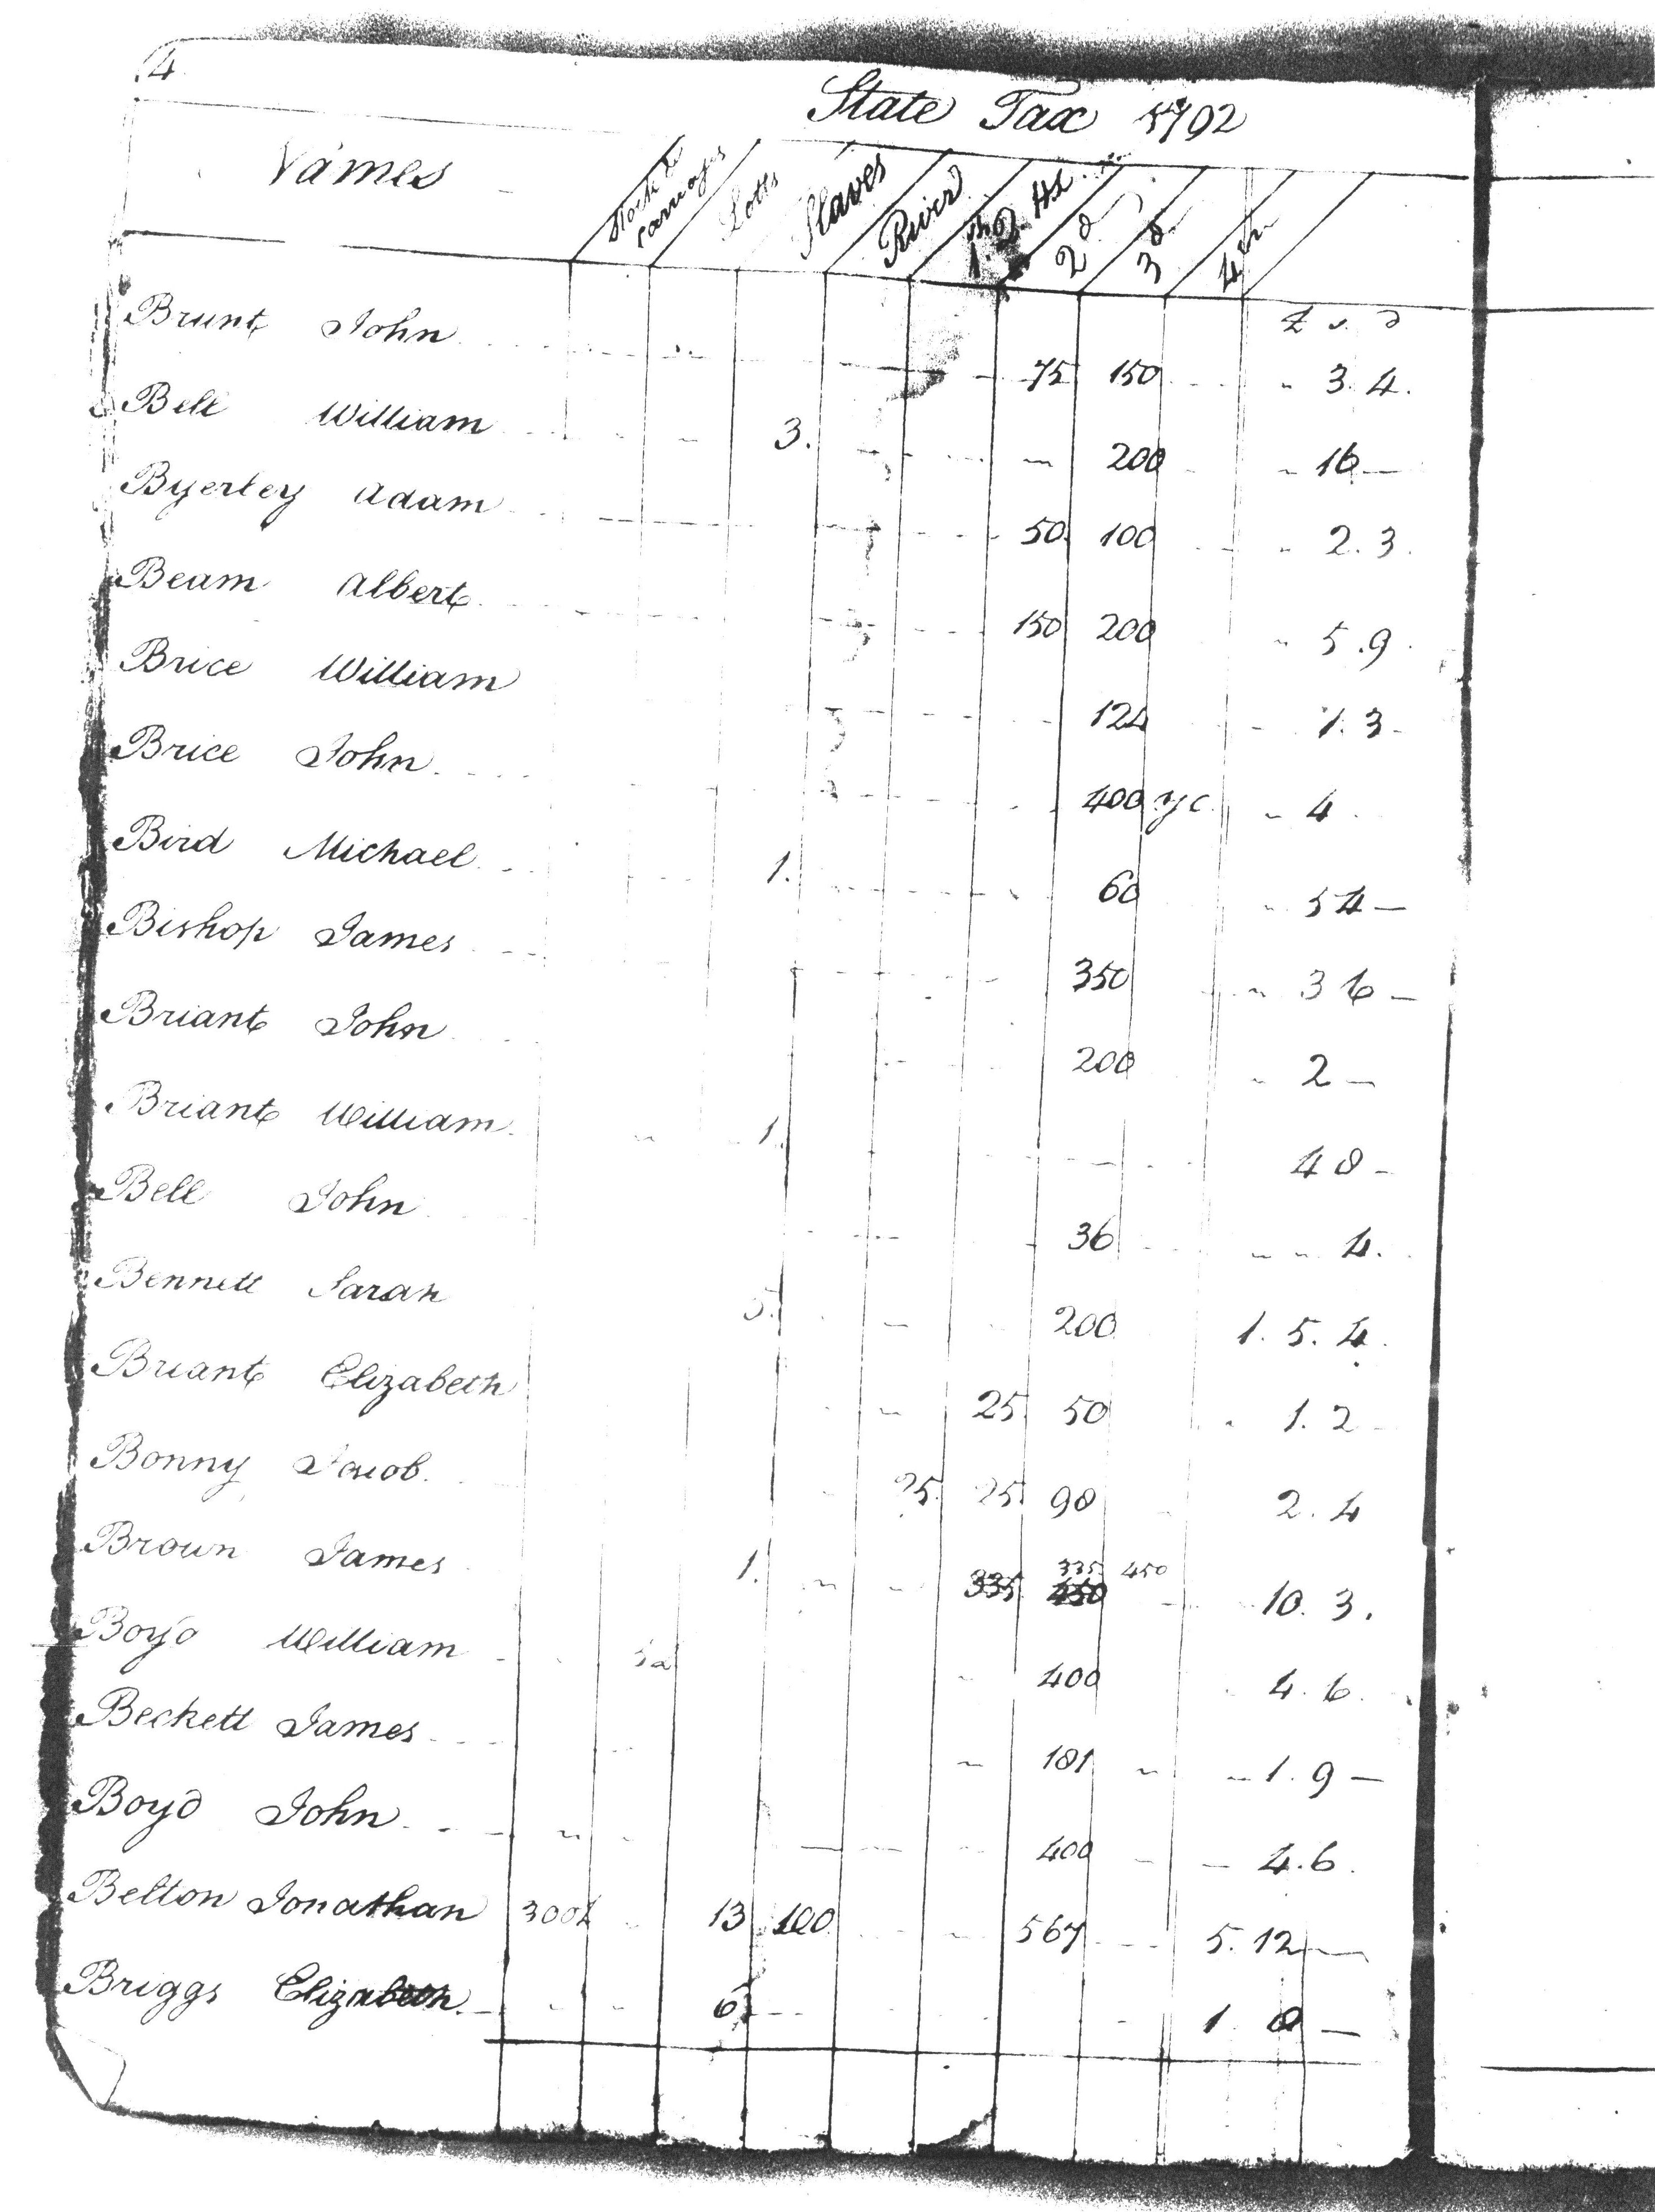 4
State Tax 1792
Names Stock & carriages Lotts Slaves River 1st 2d 3d 4th
£ s. d
Brunt John 75 150 3. 4.
Bell William 3. 200 16 —
Byerley Adam 50 100 2. 3.
Beam Albert 150 200 5. 9.
Brice William 124 1. 3 -
Brice John 400 yc 4
Bird Michael 1. 60 5 4 —
Bishop James 350 3 6 —
Briant John 200 2 —
Briant William 1. 4 8 -
Bell John 36 4.
Bennett Sarah 5. 200 1. 5. 4.
Briant Elizabeth 25 50 1. 2
Bonny Jacob 25 25 98 2. 4
Brown James 1. 335 335 450 10. 3.
Boyd William 400 4. 6.
Beckett James 181 1. 9 —
Boyd John 400 4. 6.
Belton Jonathan 300£ 13 100 567 5. 12 —
Briggs Elizabeth 6 1 8 —